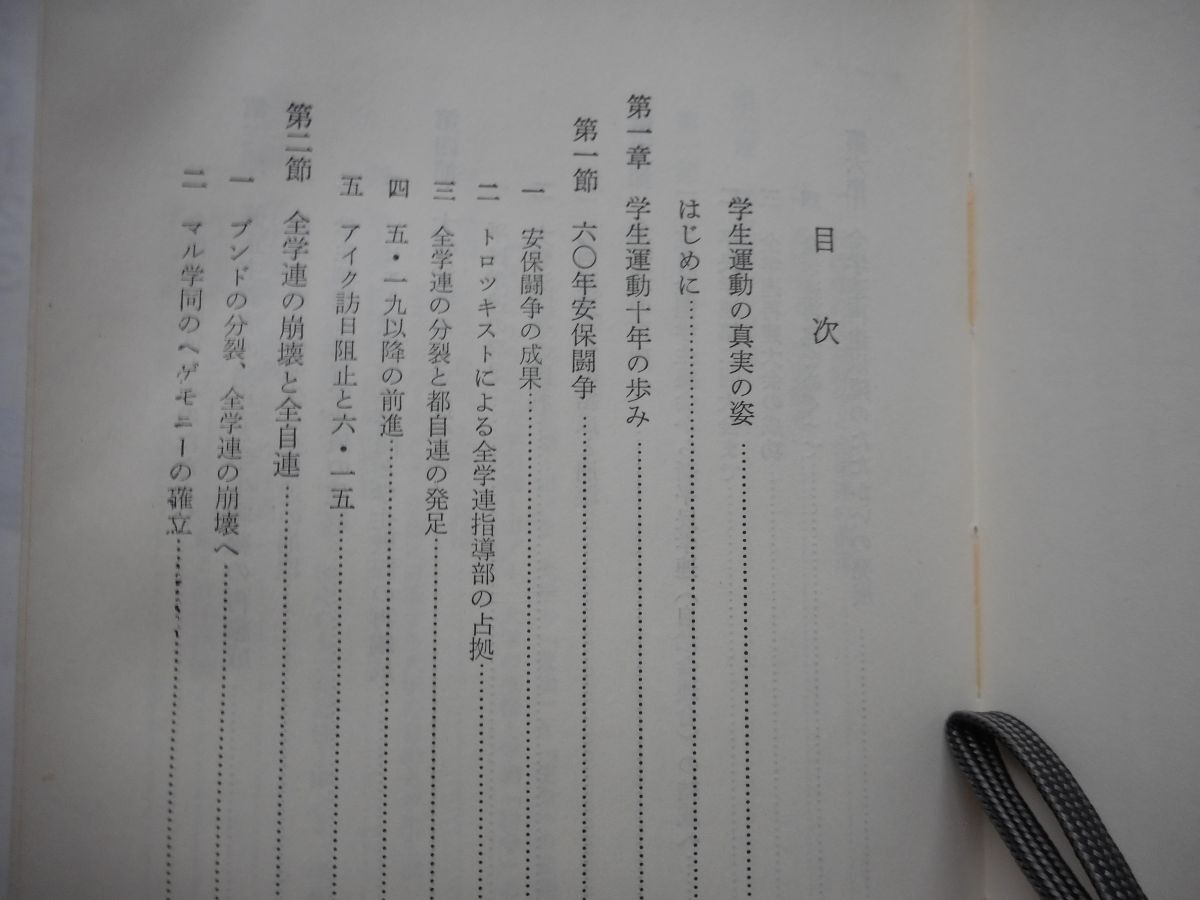 目次
学生運動の真実の姿
はじめに
第一章 学生運動十年の歩み
第一節 六〇年安保闘争
一 安保闘争の成果
二 トロツキストによる全学連指導部の占拠
三 全学連の分裂と都自連の発足
四 五・一九以降の前進
五 アイク訪日阻止と六・一五
第二節 全学連の崩壊と全自連
一 ブンドの分裂、全学連の崩壊へ
二 マル学同のヘゲモニーの確立